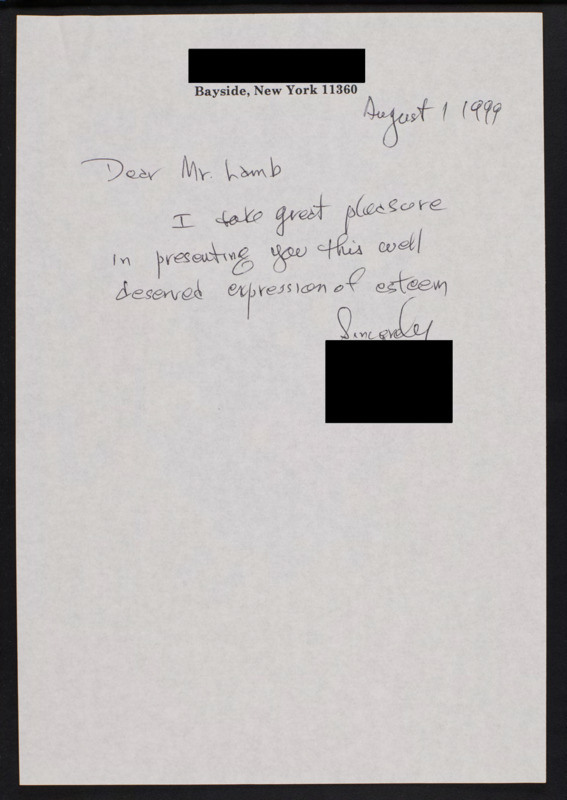 Bayside, New York 11360
August 1 1999
Dear Mr. Lamb
I take great pleasure
in presenting you this well
deserved expression of esteem
Sincerely